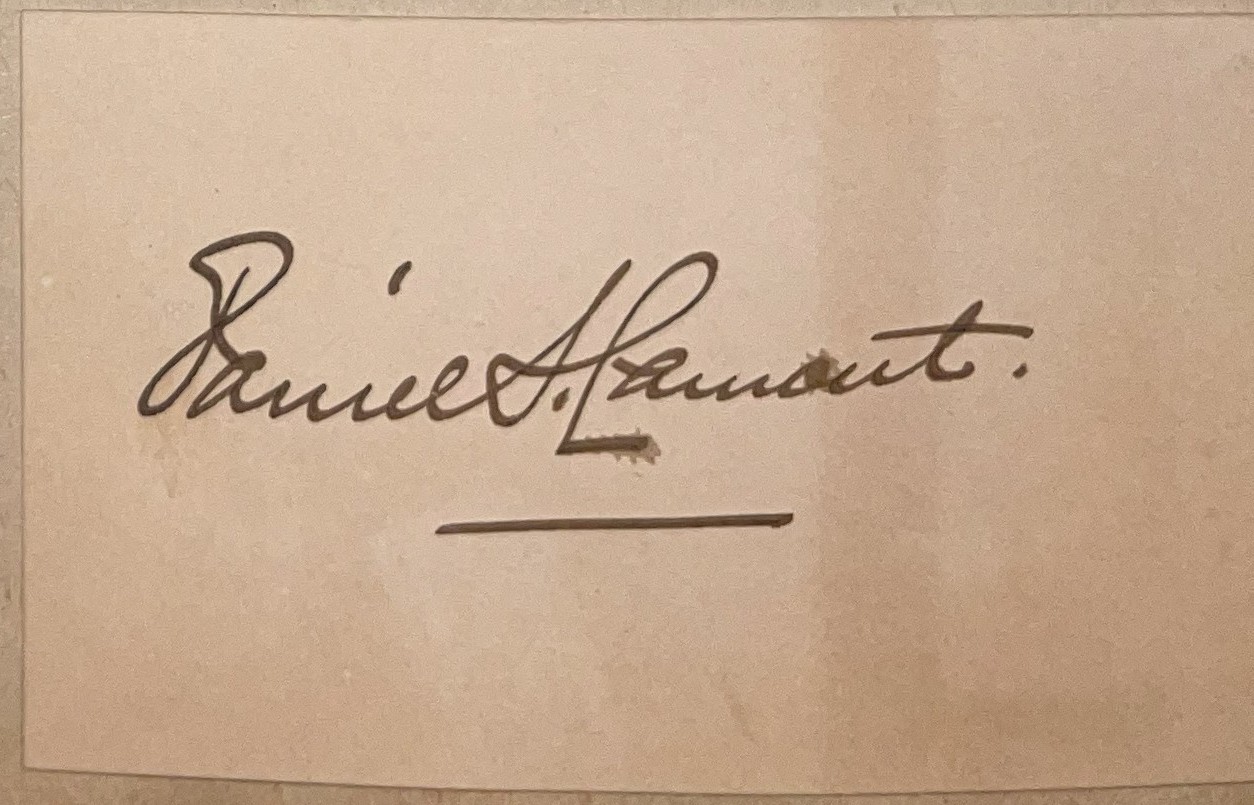 Daniel S. Lamont.